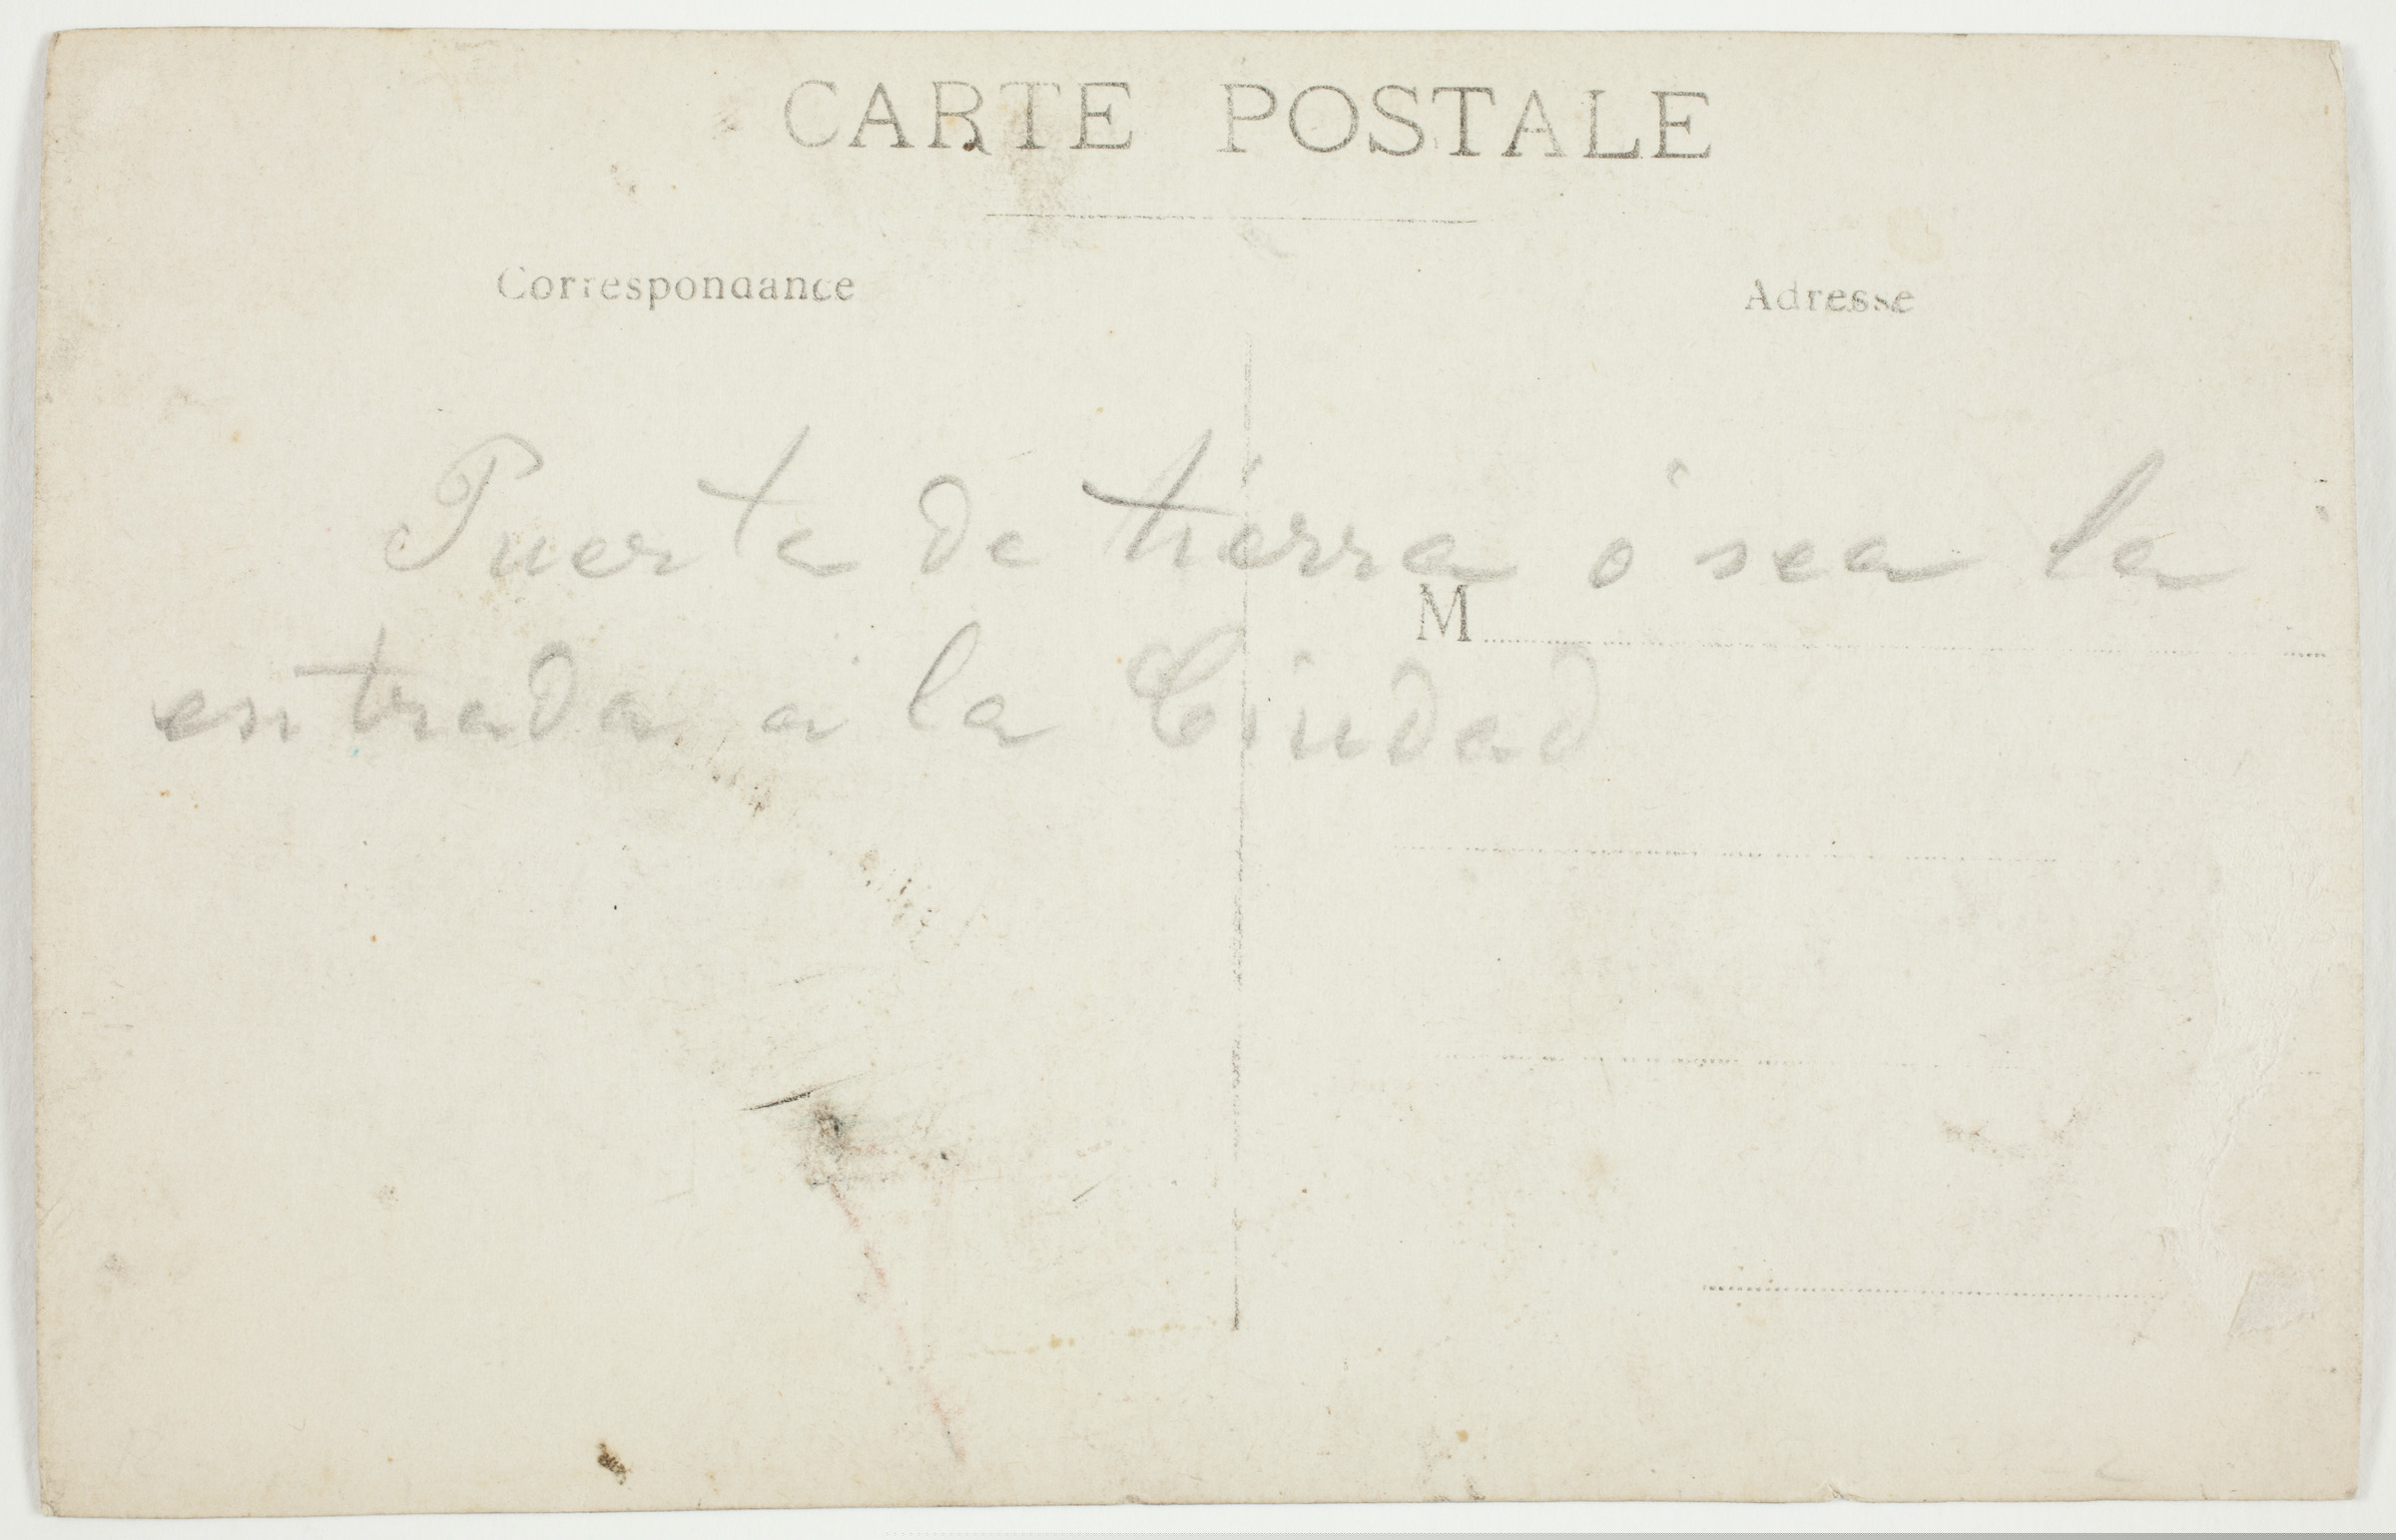 CARTE POSTALE
Correspondance
Adresse
Puerta de tierra ó sea la
M
entrada a la Ciudad